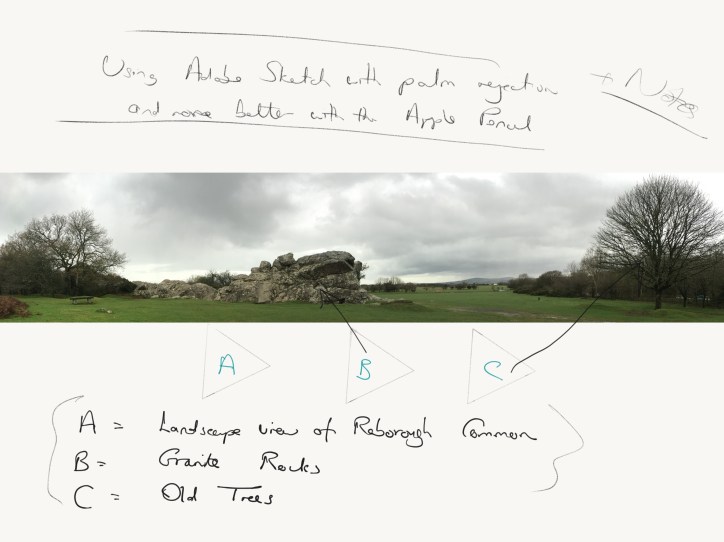 Using Adobe Sketch with palm rejection
and more better with the Apple Pencil
+ Notes
A
B
C
A = Landscape view of Roborough Common
B = Granite Rocks
C = Old Trees